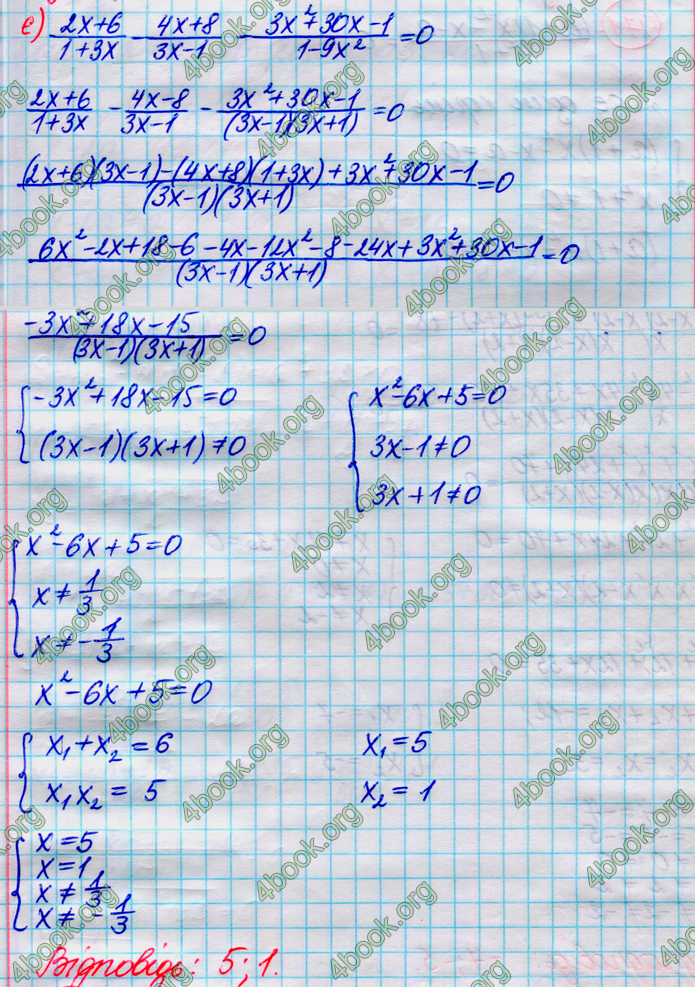 є) (2x+6)/(1+3x) - (4x+8)/(3x-1) - (3x²+30x-1)/(1-9x²) = 0
(2x+6)/(1+3x) - (4x-8)/(3x-1) - (3x²+30x-1)/((3x-1)(3x+1)) = 0
((2x+6)(3x-1)-(4x+8)(1+3x)+3x²+30x-1)/((3x-1)(3x+1)) = 0
(6x²-2x+18-6-4x-12x²-8-24x+3x²+30x-1)/((3x-1)(3x+1)) = 0
(-3x²+18x-15)/((3x-1)(3x+1)) = 0
{ -3x²+18x-15=0
(3x-1)(3x+1)≠0
{ x²-6x+5=0
3x-1≠0
3x+1≠0
{ x²-6x+5=0
x≠1/3
x≠-1/3
x²-6x+5=0
{ x₁+x₂=6
x₁x₂=5
x₁=5
x₂=1
{ x=5
x=1
x≠1/3
x≠-1/3
Відповідь: 5; 1.
4book.org